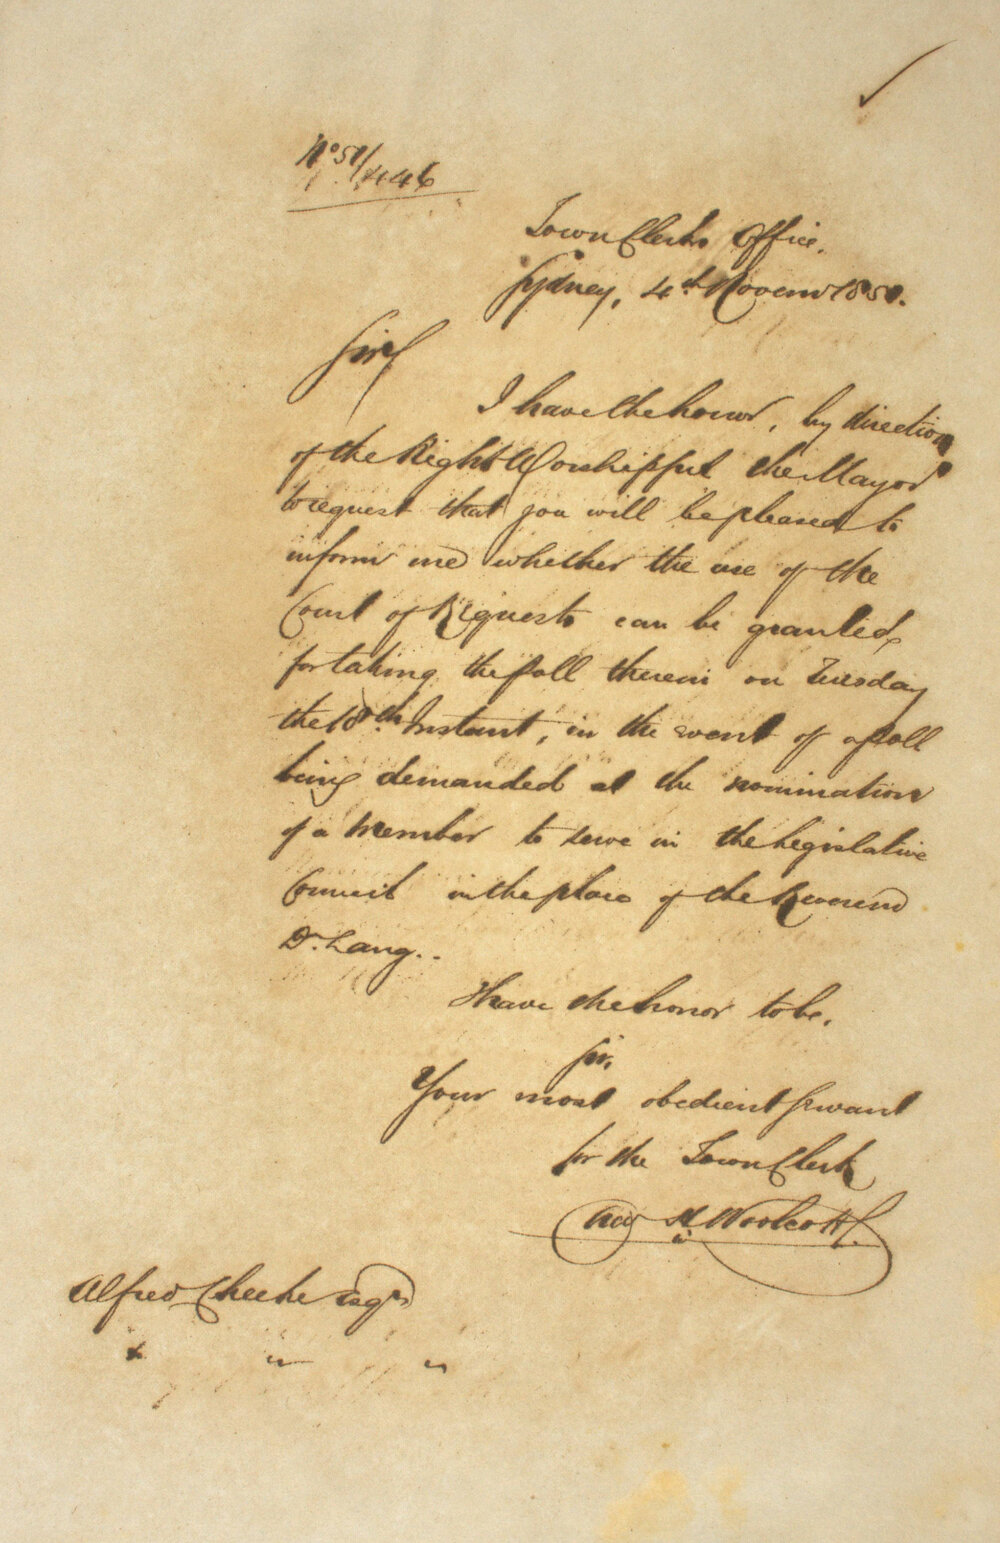 No 51/446
Town Clerks Office.
Sydney, 4th Novemr 1851.
Sir,
I have the honor, by direction
of the Right Worshipful the Mayor
to request that you will be pleased to
inform me whether the use of the
Court of Requests can be granted,
for taking the poll therein on Tuesday
the 18th Instant, in the event of a poll
being demanded at the nomination
of a Member to serve in the Legislative
Council in the place of the Reverend
Dr. Lang..
I have the honor to be,
Sir,
Your most obedient Servant
for the Town Clerk
W Woolcott
Alfred Cheeke Esqr